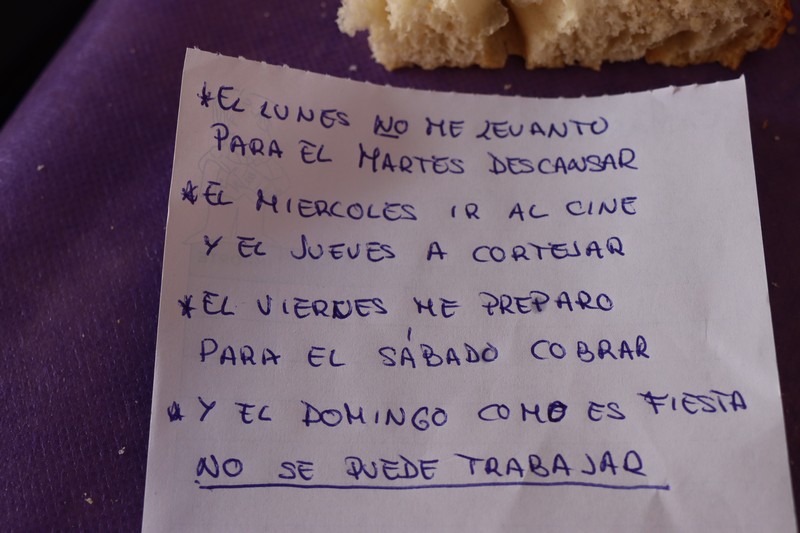 *EL LUNES NO ME LEVANTO
PARA EL MARTES DESCANSAR
*EL MIERCOLES IR AL CINE
Y EL JUEVES A CORTEJAR
*EL VIERNES ME PREPARO
PARA EL SÁBADO COBRAR
* Y EL DOMINGO COMO ES FIESTA
NO SE PUEDE TRABAJAR